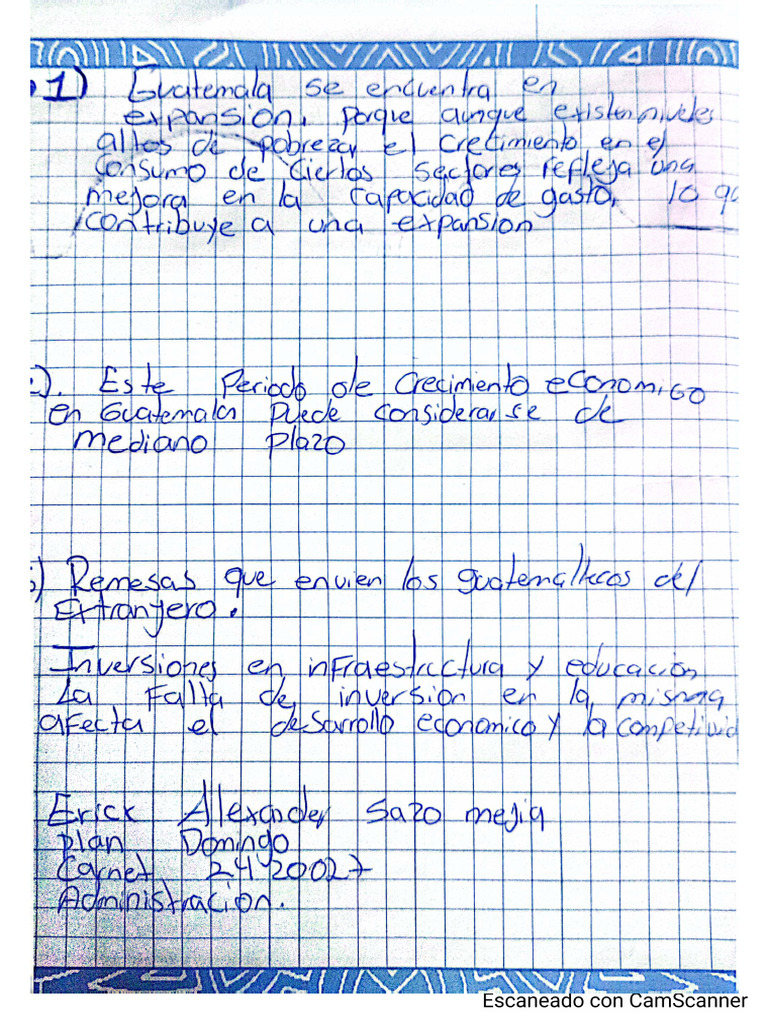 1) Guatemala se encuentra en
expansion, porque aunque existen niveles
altos de pobreza, el crecimiento en el
Consumo de Ciertos sectores refleja una
mejora en la capacidad de gasto, lo qu
contribuye a una expansion
). Este Periodo de crecimiento economico
en Guatemala Puede considerarse de
mediano plazo
) Remesas que envien los guatemaltecos del
Extranjero.
Inversiones en infraestructura y educacion
La Falta de inversion en la misma
afecta el desarrollo economico y la competivid
Erick Alexander Sazo mejia
plan Domingo
Carnet 24 20027
Administracion.
Escaneado con CamScanner